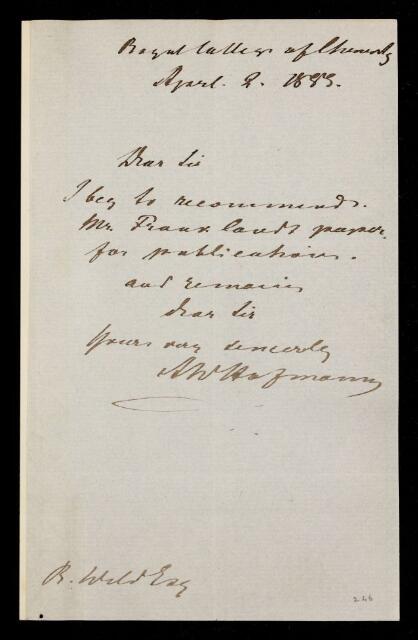 Royal College of Chemistry
April. 2. 1855.
Dear Sir
I beg to recommend
Mr. Frankland's paper
for publication.
and remain
dear Sir
Yours very sincerely
AWHofmann
R. Weld Esq
246